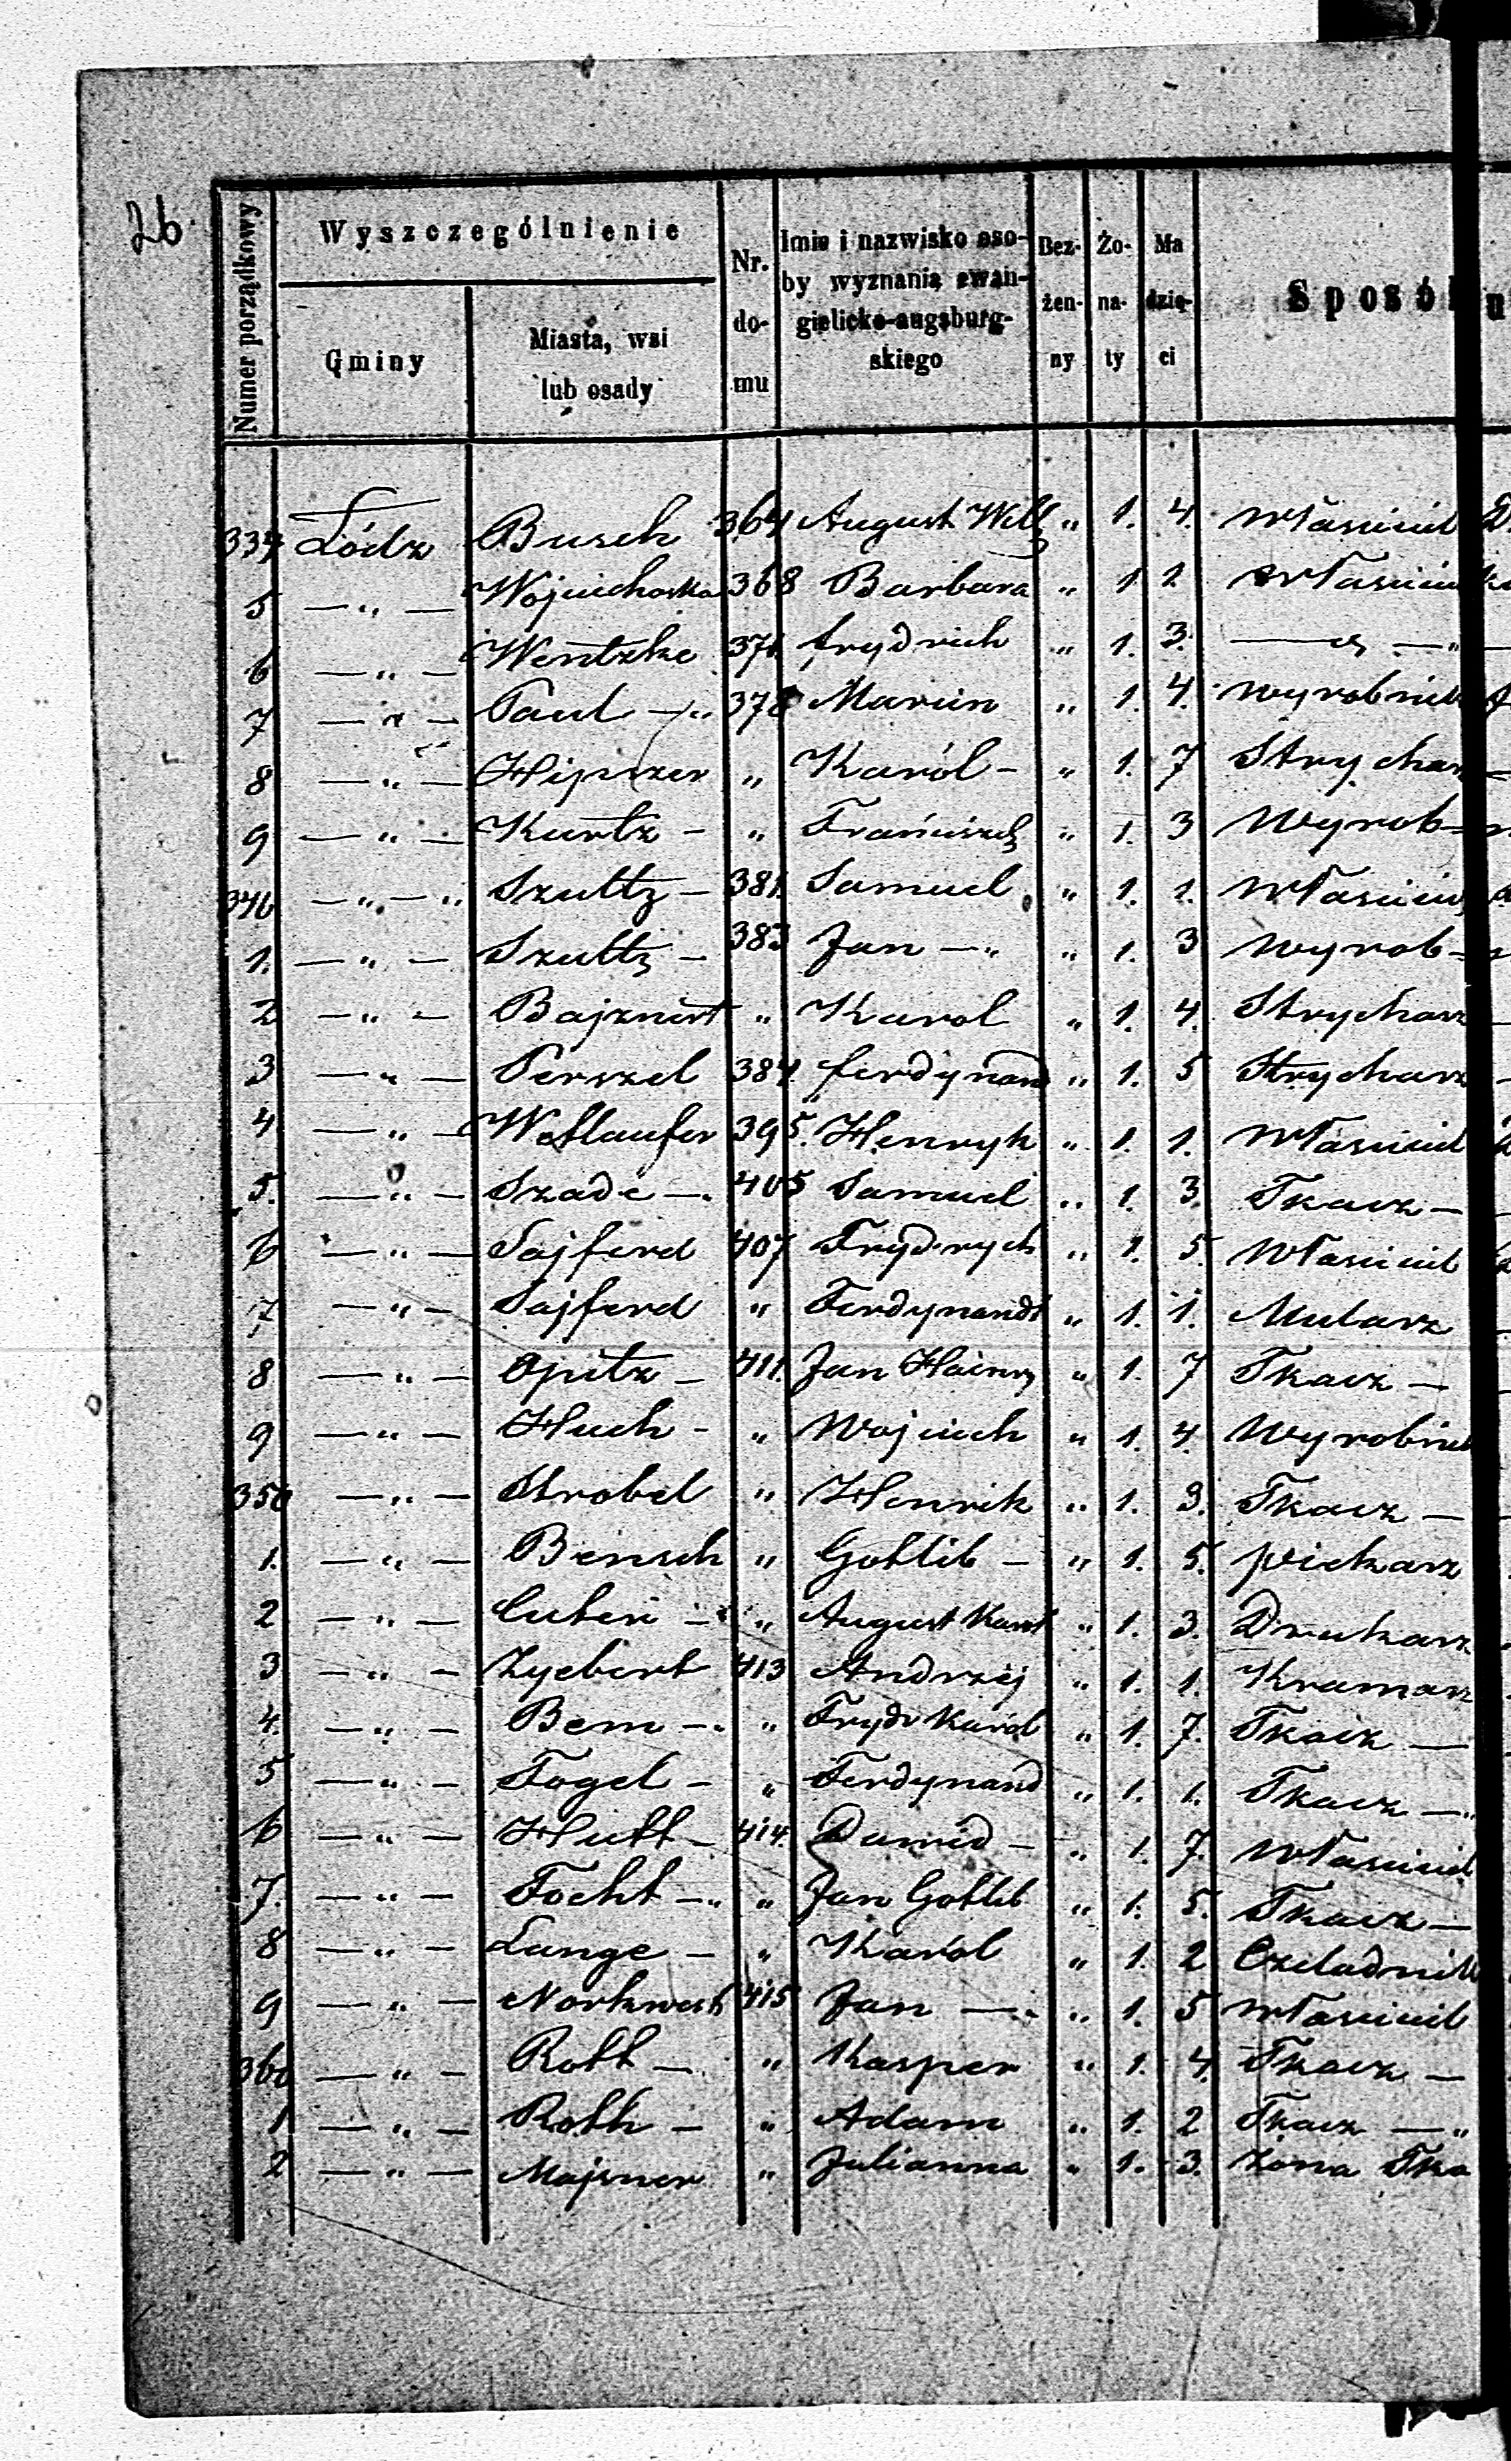 26.
Numer porządkowy
Wyszczególnienie
Gminy
Miasta, wsi lub osady
Nr. domu
Imie i nazwisko osoby wyznania ewangielicko-augsburgskiego
Bezżenny
Żonaty
Ma dzięci
Sposób u
334 Łódz Busch 364 August Wilh „ 1. 4. właściciel D
5 —„— Wojciechoska 368 Barbara „ 1 2 właściciel ka
6 —„— Wentzke 371. frydrich „ 1. 3. —„—„
7 —„— Paul —„ 378 Marcin „ 1. 4. wyrobnik
8 —„— Hipszer „ Karól - „ 1. 7 Strycharz
9 —„— Kurtz - „ Franciszek „ 1. 3 Wyrob=
340 —„—„ Szultz - 381. Samuel „ 1. 1. właściciel
1. —„— Szultz - 383 Jan —„ „ 1. 3 wyrob=
2 —„— Bajznert „ Karol „ 1. 4. Strycharz
3 —„— Perszel 384. ferdynand „ 1. 5 Strycharz
4 —„— Wetlaufer 395. Henryk „ 1. 1. właściciel
5. —„— Szade —. 405 Samuel „ 1. 3. Tkacz —
6 —„— Sajferd 407 Frydrych „ 1. 5. właściciel
7 —„— Sajferd „ Ferdynand „ 1. 1. Mularz
8 —„— Opitz — 411. Jan Hainr „ 1. 7 Tkacz —
9 —„— Huch - „ Wojciech „ 1. 4. Wyrobnik
350 —„— Strobel „ Henrik „ 1. 3. Tkacz —
1. —„— Bensch „ Gottlib — „ 1. 5. piekarz
2 —„— — „ August Karol „ 1. 3. Drukarz
3 —„— Zyebert 413 Andrzej „ 1. 1. Kramarz
4. —„— Bem —. „ Fryd. Karól „ 1. 7. Tkacz —
5 —„— Fogel — „ Ferdynand „ 1. 1. Tkacz —„
6 —„— Hutt — 414. Dawid — „ 1. 7. właściciel
7. —„— Focht —. „ Jan Gottlib „ 1. 5. Tkacz —
8 —„— Lange — „ Karól „ 1. 2 Czeladnik
9 —„— Norkwest 415 Jan —. „ 1. 5 właściciel
360 —„— Rott — „ Kasper „ 1. 4. Tkacz —
1 —„— Roth — „ Adam „ 1. 2 Tkacz —„
2 —„— Majsner „ Julianna „ 1. 3. żona Tka